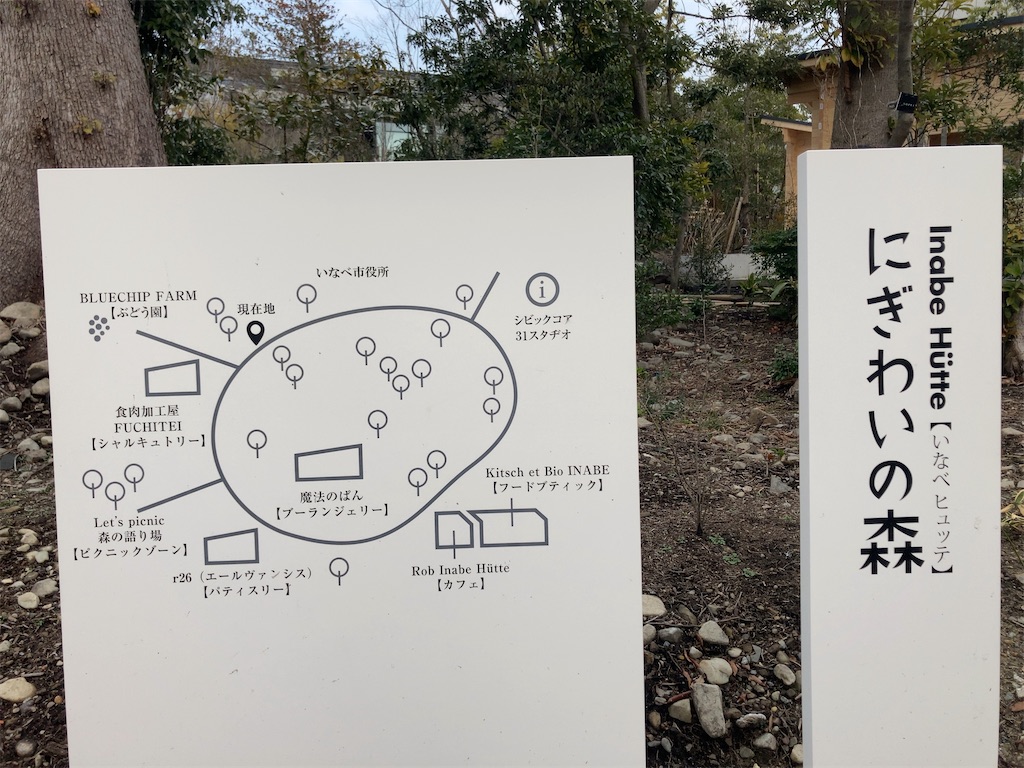 いなべ市役所
BLUECHIP FARM
【ぶどう園】
現在地
i
シビックコア
31スタヂオ
食肉加工屋
FUCHITEI
【シャルキュトリー】
魔法のぱん
【ブーランジェリー】
Kitsch et Bio INABE
【フードブティック】
Let's picnic
森の語り場
【ピクニックゾーン】
r26（エールヴァンシス）
【パティスリー】
Rob Inabe Hütte
【カフェ】
Inabe Hütte【いなべ ヒュッテ】
にぎわいの森